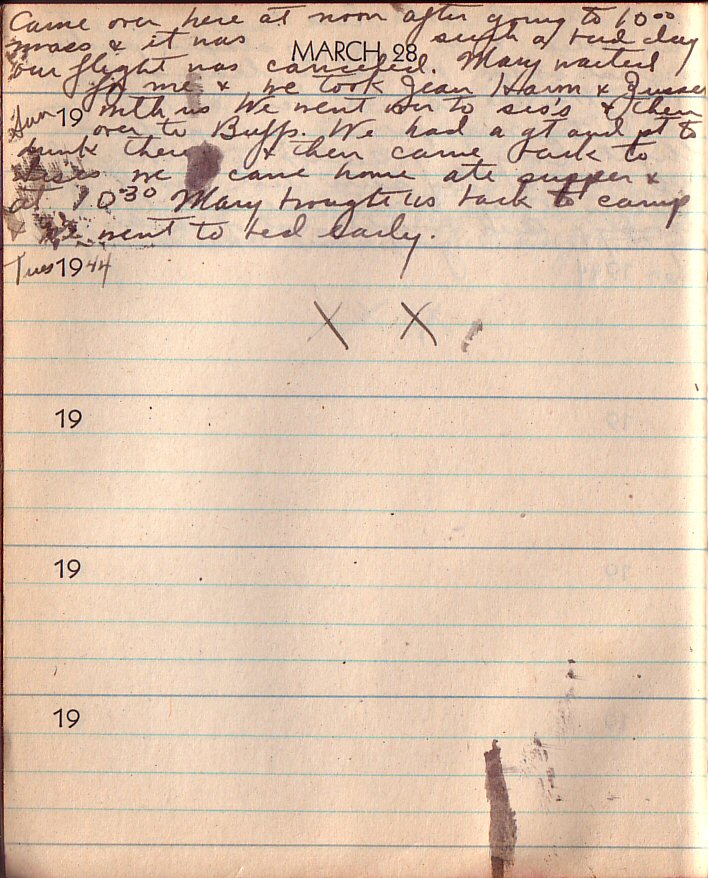 Came over here at noon after going to 10⁰⁰
mass & it was such a bad day
MARCH 28
our flight was canceled. Mary waited
for me & we took Jean Harm &
Sun 19 with us We went over to sis's & then
over to Buffs. We had a qt and pt to
drink there & then came back to
we came home ate supper &
at 10³⁰ Mary brought us back to camp
we went to bed early.
Tues 1944
X X
19
19
19